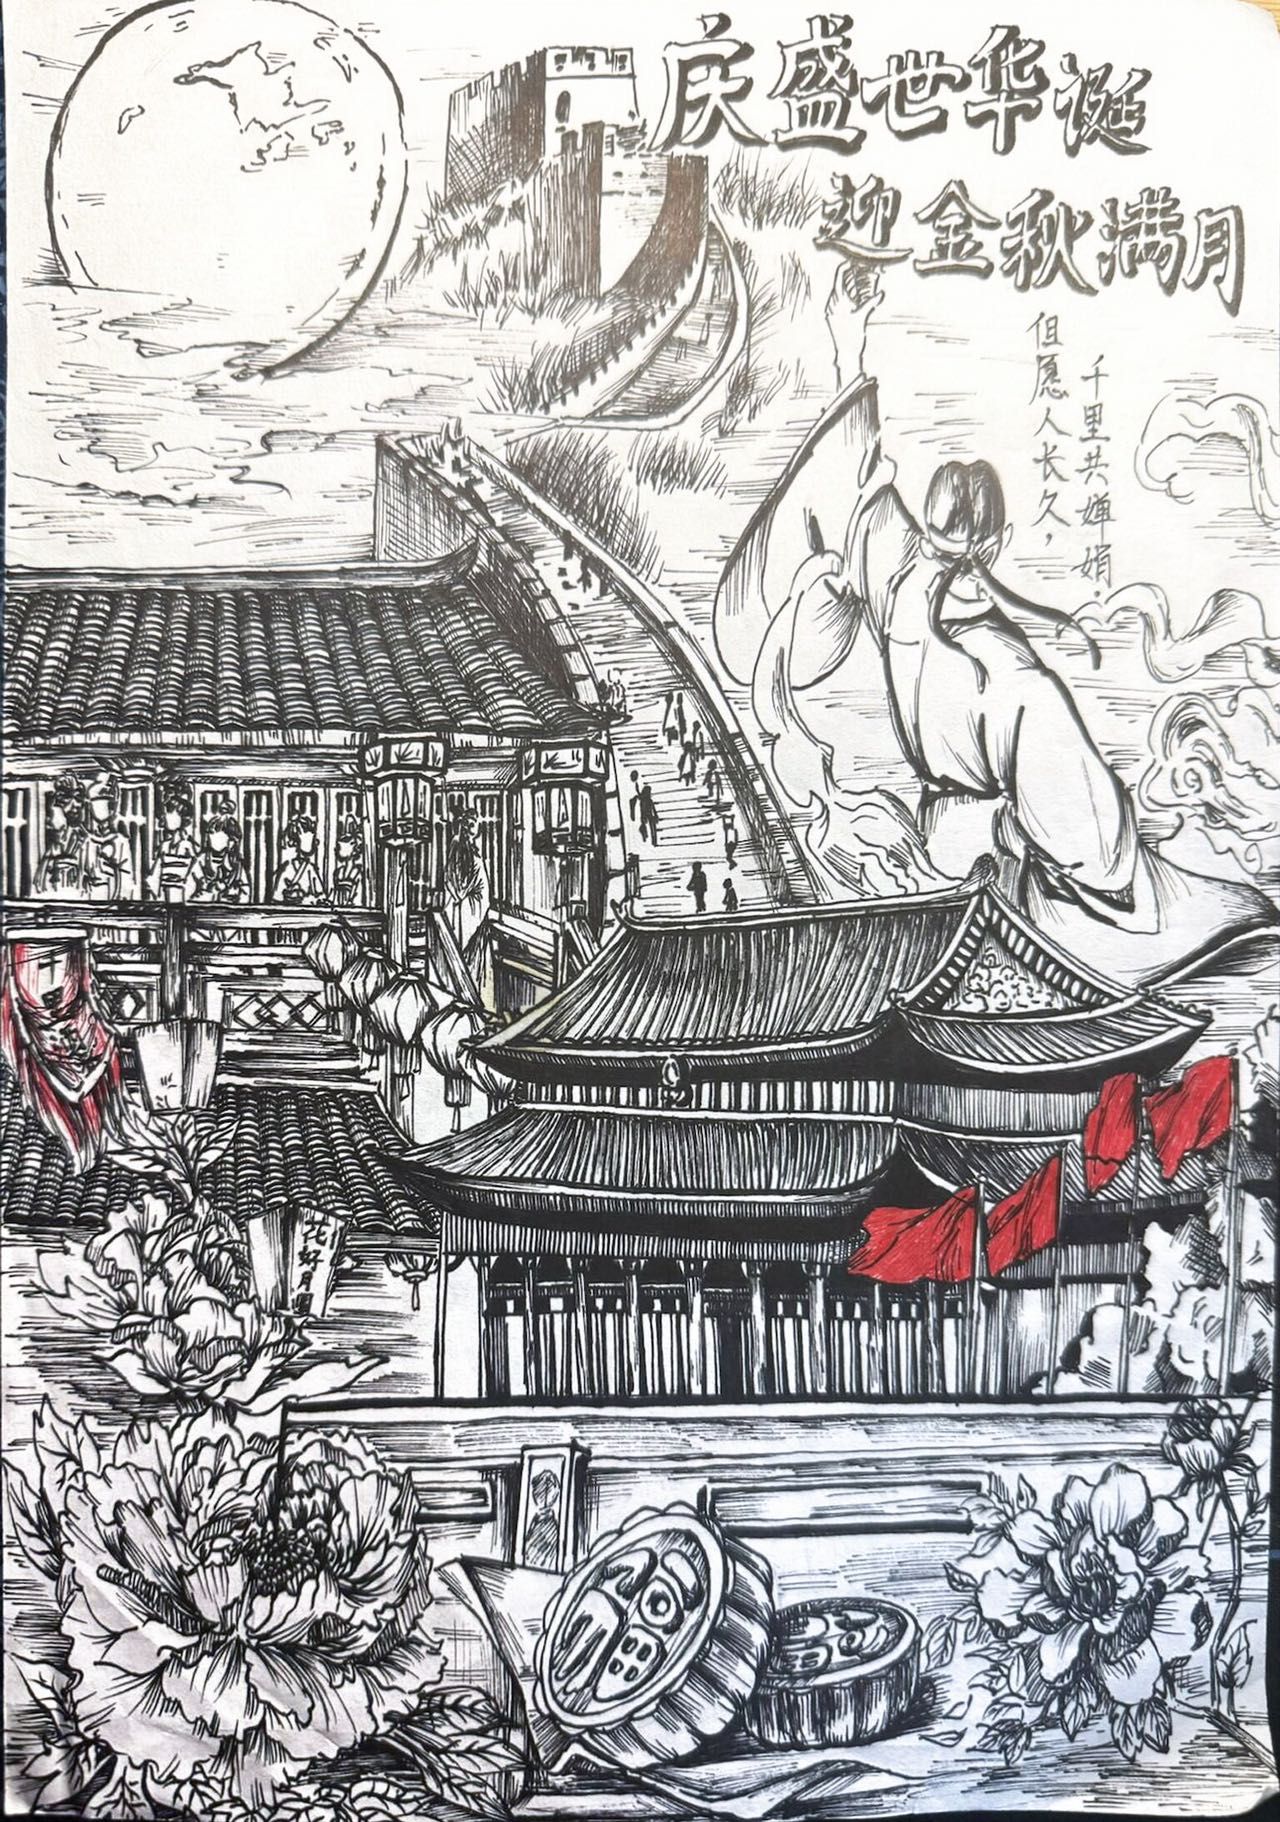 庆盛世华诞
迎金秋满月
但愿人长久，
千里共婵娟.
花好月圆